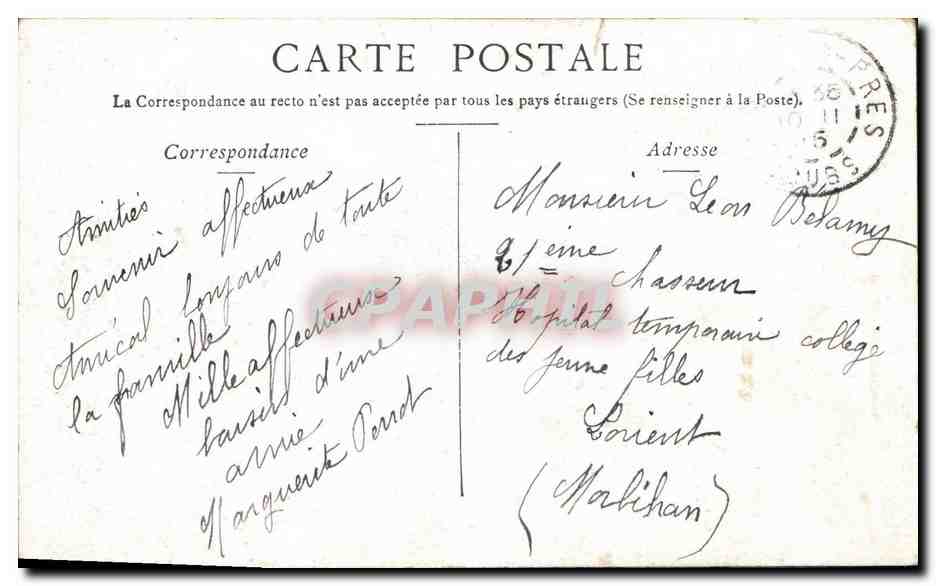 CARTE POSTALE
La Correspondance au recto n'est pas acceptée par tous les pays étrangers (Se renseigner à la Poste).
Correspondance
Amitiés
Souvenir affectueux
Amical toujours de toute
la famille
Mille affectueux
baisers d'une
amie
Marguerite Perrot
Adresse
Monsieur Leon Belamy
21ème Chasseur
Hopital temporaire collège
des jeune filles
Lorient
(Morbihan)
CPAPHIL